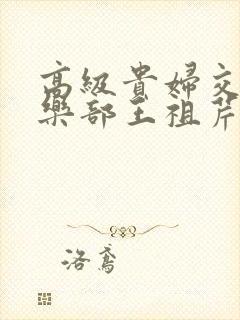 高級貴婦交
樂部王祖芹
洛鳶